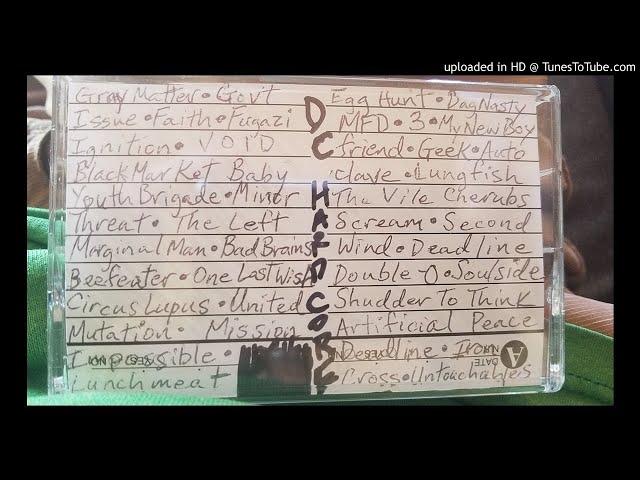 uploaded in HD @ TunesToTube.com
Gray Matter • Gov't
Issue • Faith • Fugazi
Ignition • VOID
Black Market Baby
Youth Brigade • Minor
Threat • The Left
Marginal Man • Bad Brains
Beefeater • One Last Wish
Circus Lupus • United
Mutation • Mission
Impossible •
Lunchmeat
DC HARDCORE!
Egg Hunt • Dag Nasty
MFD • 3 • My New Boy
friend • Geek • Auto
clave • Lungfish
The Vile Cherubs
Scream • Second
Wind • Deadline
Double-O • Soulside
Shudder To Think
Artificial Peace
Deadline • Iron
Cross • Untouchables
A
DATE